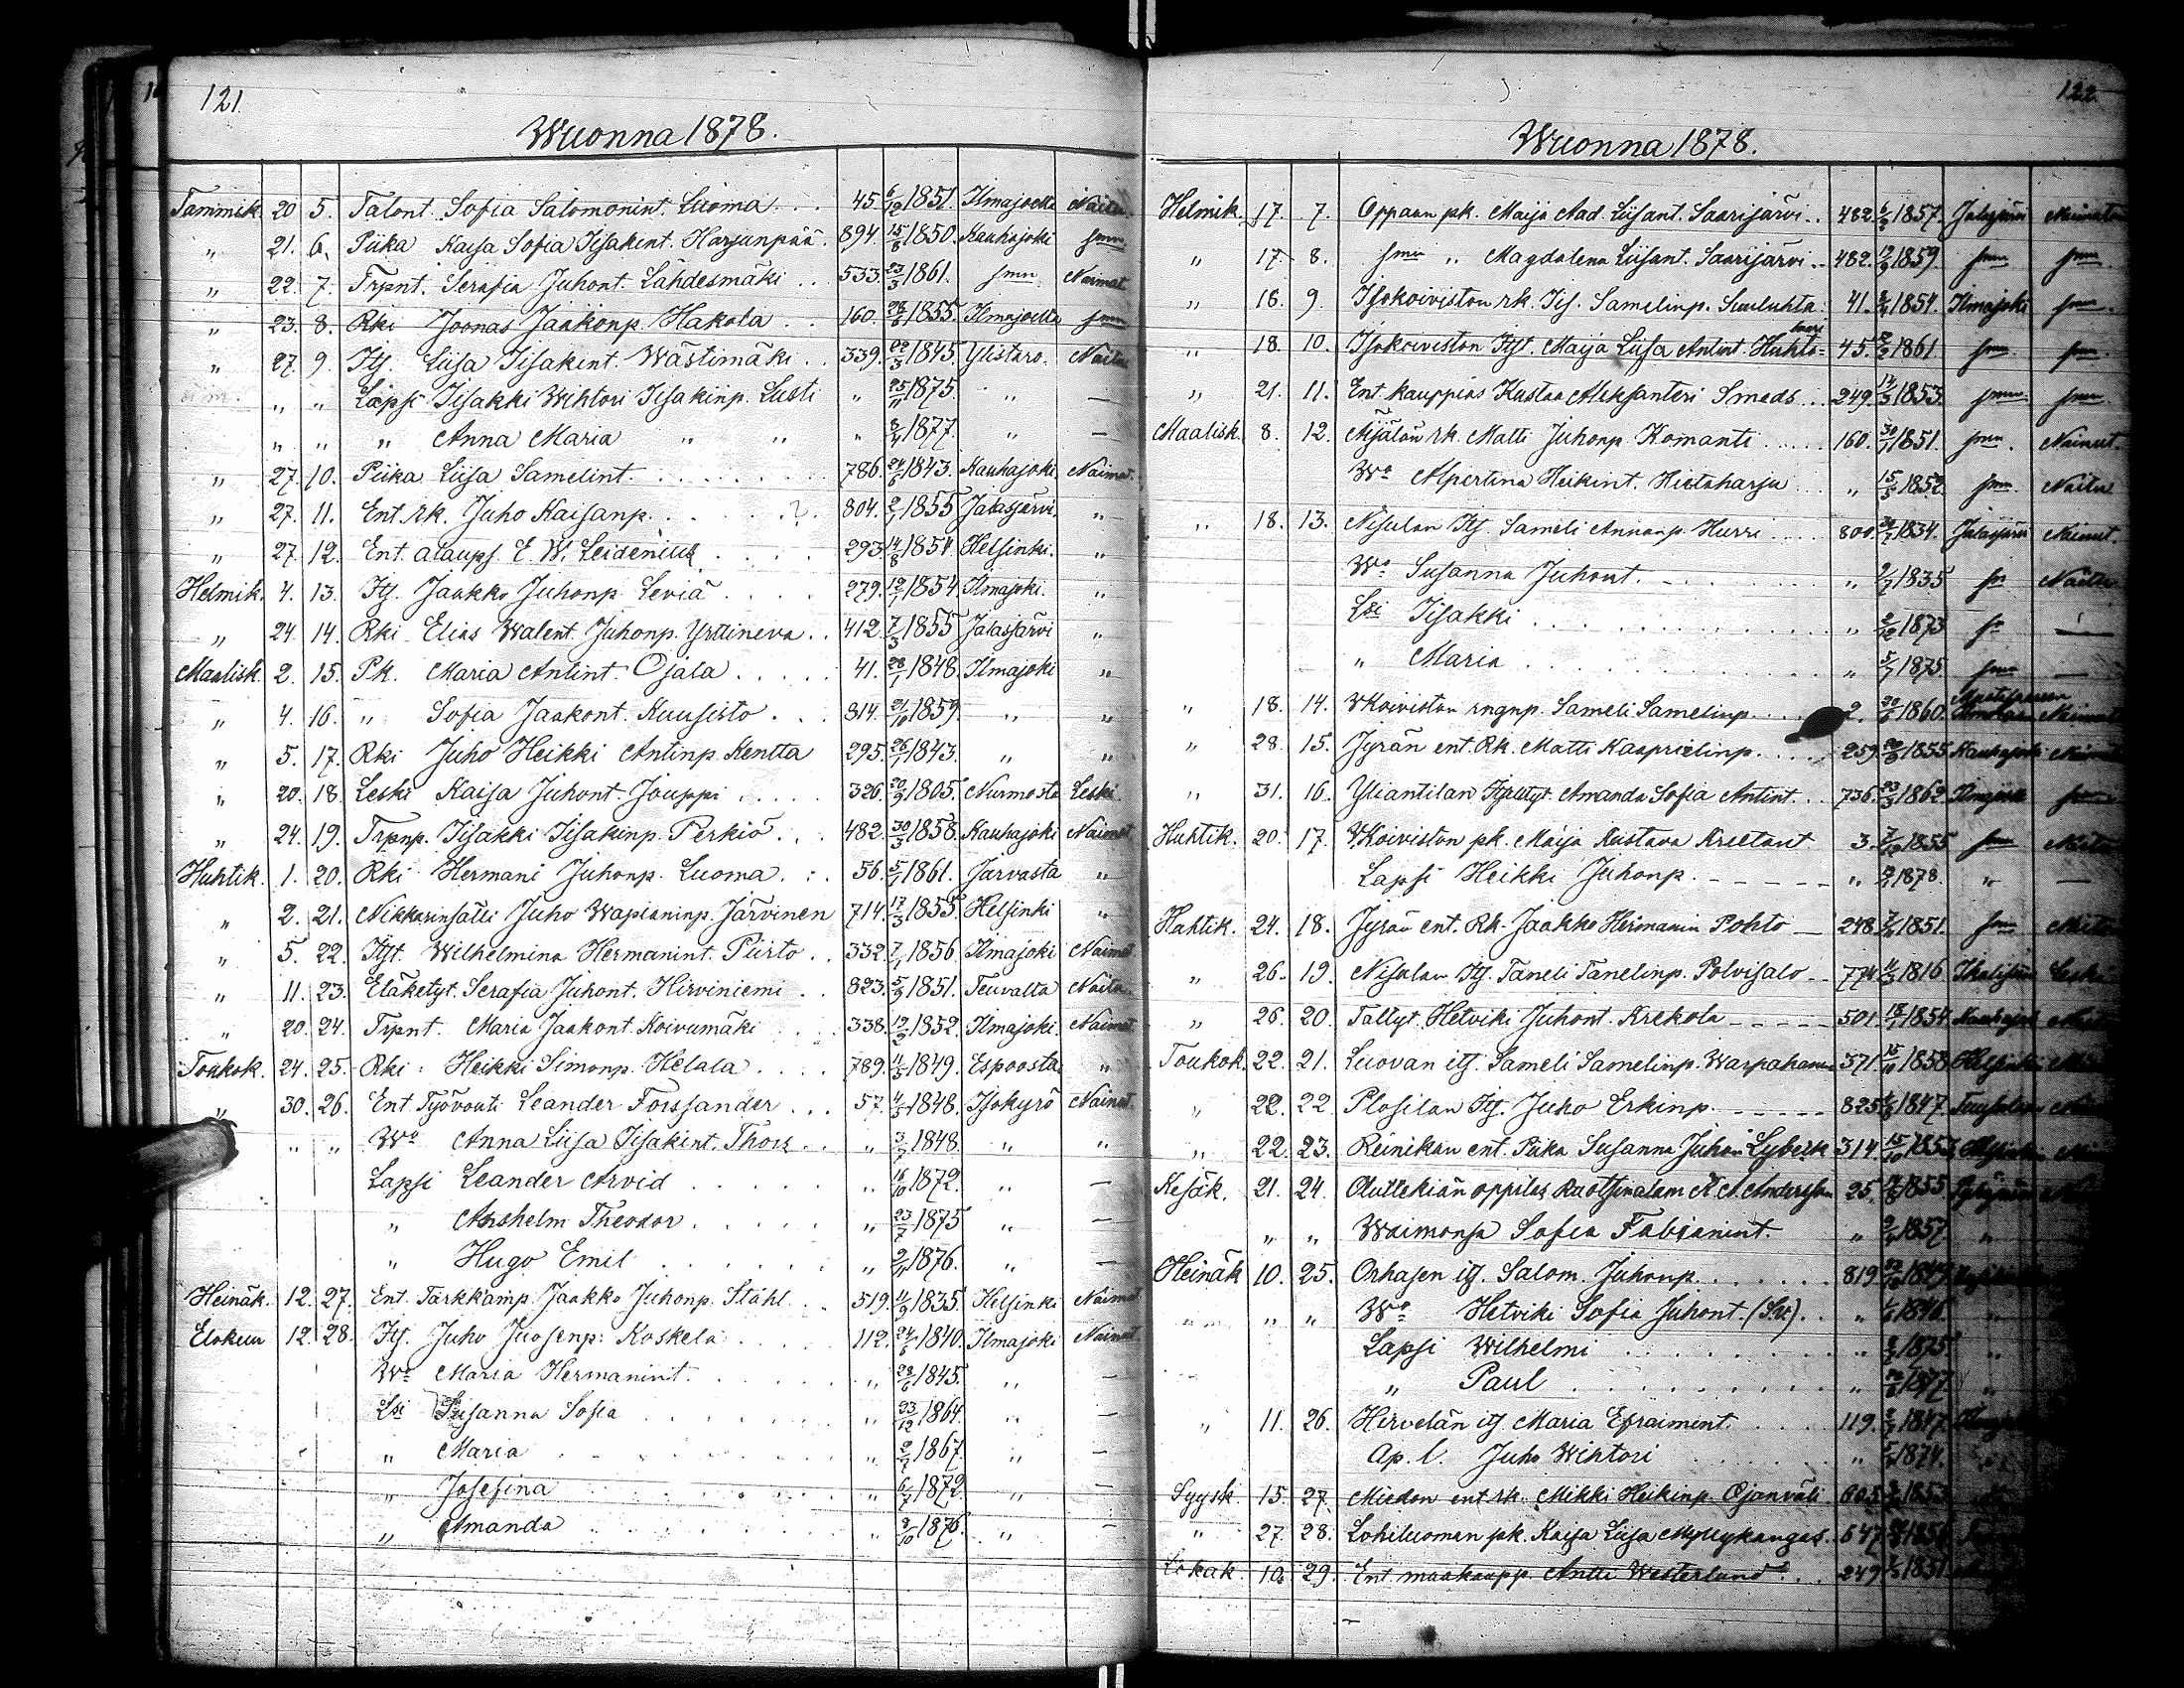 121.
Wuonna 1878.
Tammik. 20 5. Talont. Sofia Salomonint. Luoma . . . 45. 6/12 1851. Ilmajoelta Naitu
„ 21. 6. Piika Kaisa Sofia Iisakint. Harjunpää. 894. 15/8 1850. Kauhajoki smn
„ 22. 7. Trpnt. Serafia Juhont. Lähdesmäki . . 533. 23/3 1861. smn Naimat.
„ 23. 8. Rki Joonas Jaakonp. Hakola . . 160. 1855. Ilmajoelta smn
„ 27. 9. Its. Liisa Iisakint. Wästimäki . . 339. 22/3 1845. Ylistaro. Naitu
„ „ Lapsi Iisakki Wihtori Iisakinp. Lusti „ 25/11 1875. „ —
„ „ „ Anna Maria „ „ „ 1877. „ —
„ 27. 10. Piika Liisa Samelint. . . . . 786. 24/6 1843. Kauhajoki. Naimat.
„ 27. 11. Ent. rk. Juho Kaisanp. . . . . ? 804. 2/1 1855 Jalasjärvi. „
„ 27. 12. Ent. alaups. E. W. Leidenius . . . 293. 14/8 1854. Helsinki. „
Helmik. 4. 13. Its. Jaakko Juhonp. Leviä . . . . 279. 12/1 1854. Ilmajoki. „
„ 24. 14. Rki Elias Walent. Juhonp. Yrttineva . . 412. 7/3 1855 Jalasjärvi „
Maalisk. 2. 15. Pk. Maria Antint. Ojala . . . . . 41. 28/1 1848. Ilmajoki „
„ 4. 16. „ Sofia Jaakont. Kuusisto . . . 814. 21/10 1859. „ „
„ 5. 17. Rki Juho Heikki Antinp. Kentta 295. 26/1 1843. „ „
„ 20. 18. Leski Kaisa Juhont. Jouppi . . . . 326. 20/9 1805. Nurmosta Leski
„ 24. 19. Trpnp. Iisakki Iisakinp. Perkiö . . . 482. 30/3 1858. Kauhajoki Naimat
Huhtik. 1. 20. Rki Hermani Juhonp. Luoma . : . 56. 5/1 1861. Järvasta „
„ 2. 21. Nikkarinsälli Juho Wapianinp. Järvinen 714. 17/3 1855. Helsinki „
„ 5. 22. Itst. Wilhelmina Hermanint. Piirto . . 332. 7/1 1856. Ilmajoki Naimat
„ 11. 23. Eläketyt. Serafia Juhont. Hirviniemi . . 823. 5/9 1851. Teuvalta Naitu
„ 20. 24. Trpnt. Maria Jaakont. Koivumäki . . 338. 12/3 1852. Ilmajoki. Naimat
Toukok. 24. 25. Rki Heikki Simonp. Helala . . . . 789. 11/5 1849. Espoosta „
„ 30. 26. Ent. Työvouti Leander Forssander . . . 57. 1848. Isokyrö Nainut
„ „ Wo Anna Liisa Iisakint. Thors . . „ 1848. „ „
Lapsi Leander Arvid . . . . . „ 16/10 1872. „ —
„ Anshelm Theodor . . . . . „ 23/7 1875 „ —
„ Hugo Emil . . . . . . „ 1876. „ —
Heinäk. 12. 27. Ent. Tarkkamp. Jaakko Juhonp. Ståhl . . 519. 11/9 1835. Helsinki Naimat
Elokuu 12. 28. Its. Juho Juosenp. Koskela . . . . 112. 1840. Ilmajoki Nainut
Wo Maria Hermanint. . . . . . „ 1845. „ —
Lsi Susanna Sofia . . . . . . „ 23/12 1864. „ —
„ Maria . . . . . . „ 1867. „ —
„ Josefina . . . . . . „ 6/7 1872. „ —
„ Amanda . . . . . . „ 1876. „ —
122.
Wuonna 1878.
Helmik. 17. 7. Oppaan pk. Maija Aad. Liisant. Saarijärvi . . 482. 1857. Jalasjärvi Naimaton
„ 17. 8. smn „ Magdalena Liisant. Saarijärvi . . 482. 12/9 1859. smn smn.
„ 18. 9. Isokoiviston rk. Iis. Samelinp. Luuluhta. 41. 1854. Ilmajoki smn.
„ 18. 10. Isokoiviston Itst. Maija Liisa Antint. Huhta= 45. 1861 smn smn.
„ 21. 11. Ent. kauppias Kustaa Aleksanteri Smeds . . 249. 1853. smn smn.
Maalisk. 8. 12. Äijälän rk. Matti Juhonp. Komanti . . . . 160. 30/1 1851. smn. Nainut.
Wo Alpertina Heikint. Hietaharju . . . „ 15/5 1852. smn Naitu
„ 18. 13. Nisulan Its. Sameli Annanp. Hurri . . . . 800. 1834. Jalasjärvi Nainut.
Wo Susanna Juhont. . . . . . „ 1835 Naitu
Lsi Iisakki . . . . . . „ 1873 —
„ Maria . . . . . . „ 1875. smn —
„ 18. 14. W Koiviston rngnp. Sameli Samelinp. . . . 2. 1860.
„ 28. 15. Jyrän ent. Rk. Matti Kaaprielinp. . . . 259. 1855. Kauhajoki
„ 31. 16. Yliantilan Itstyt. Amanda Sofia Antint. . . 736. 1862. Ilmajoki smn
Huhtik. 20. 17. V. Koiviston pk. Maija Kustava Kreetant 3. 1855 smn Naitu
Lapsi Heikki Juhonp. . . . . „ 1878. „ —
Huhtik. 24. 18. Jyrän ent. Rk. Jaakko Hermanin Pohto — 248. 1851. smn
„ 26. 19. Nisulan Its. Taneli Tanelinp. Polvisalo — 774. 1816 Leski
„ 26. 20. Taltyt. Hetviki Juhont. Krekola — 501. 1854. Kauhajoki
Toukok. 22. 21. Luovan its. Sameli Samelinp. Warpahamu 371. 15/10 1853 Helsinki
„ 22. 22. Plosilan Its. Juho Erkinp. . . . 825. 1847.
„ 22. 23. Reinikan ent. Piika Susanna Juhon Lybeck 314. 15/10 1853,
Kesäk. 21. 24. Oluttekiän oppilas Ruotsinalam A. Andersson 25. 1855
„ „ Waimonsa Sofia Fabianint. „ 1857. „
Heinäk. 10. 25. Orhasen its. Salom. Juhonp. . . . . . 819. 1847.
„ „ Wo Hetviki Sofia Juhont. (Sv.) . . „ 1846.
Lapsi Wilhelmi . . . . . . „ 1875. „
„ Paul . . . . . . „ 1877. „
„ 11. 26. Hirvelän its. Maria Efraimint. . . . 119. 1847.
Ap. l. Juho Wihtori . . . . . „ 1874.
Syysk. 15. 27. Miedon ent. rk. Mikki Heikinp. Ojanväli 805. 1853.
„ 27. 28. Lohiluoman pk. Kaisa Liisa Myllykangas. 647. 1856.
Lokak. 10. 29. Ent. maakaupp. Antti Westerlund . . 249. 1851.